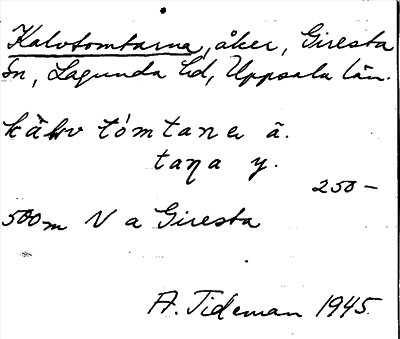 Kalvtomtarna, åker, Giresta
Sn, Lagunda Hd, Uppsala län.
kàlv tómtaṇa ä.
taṇa y.
250-
500m V a Giresta
A. Tideman 1945.